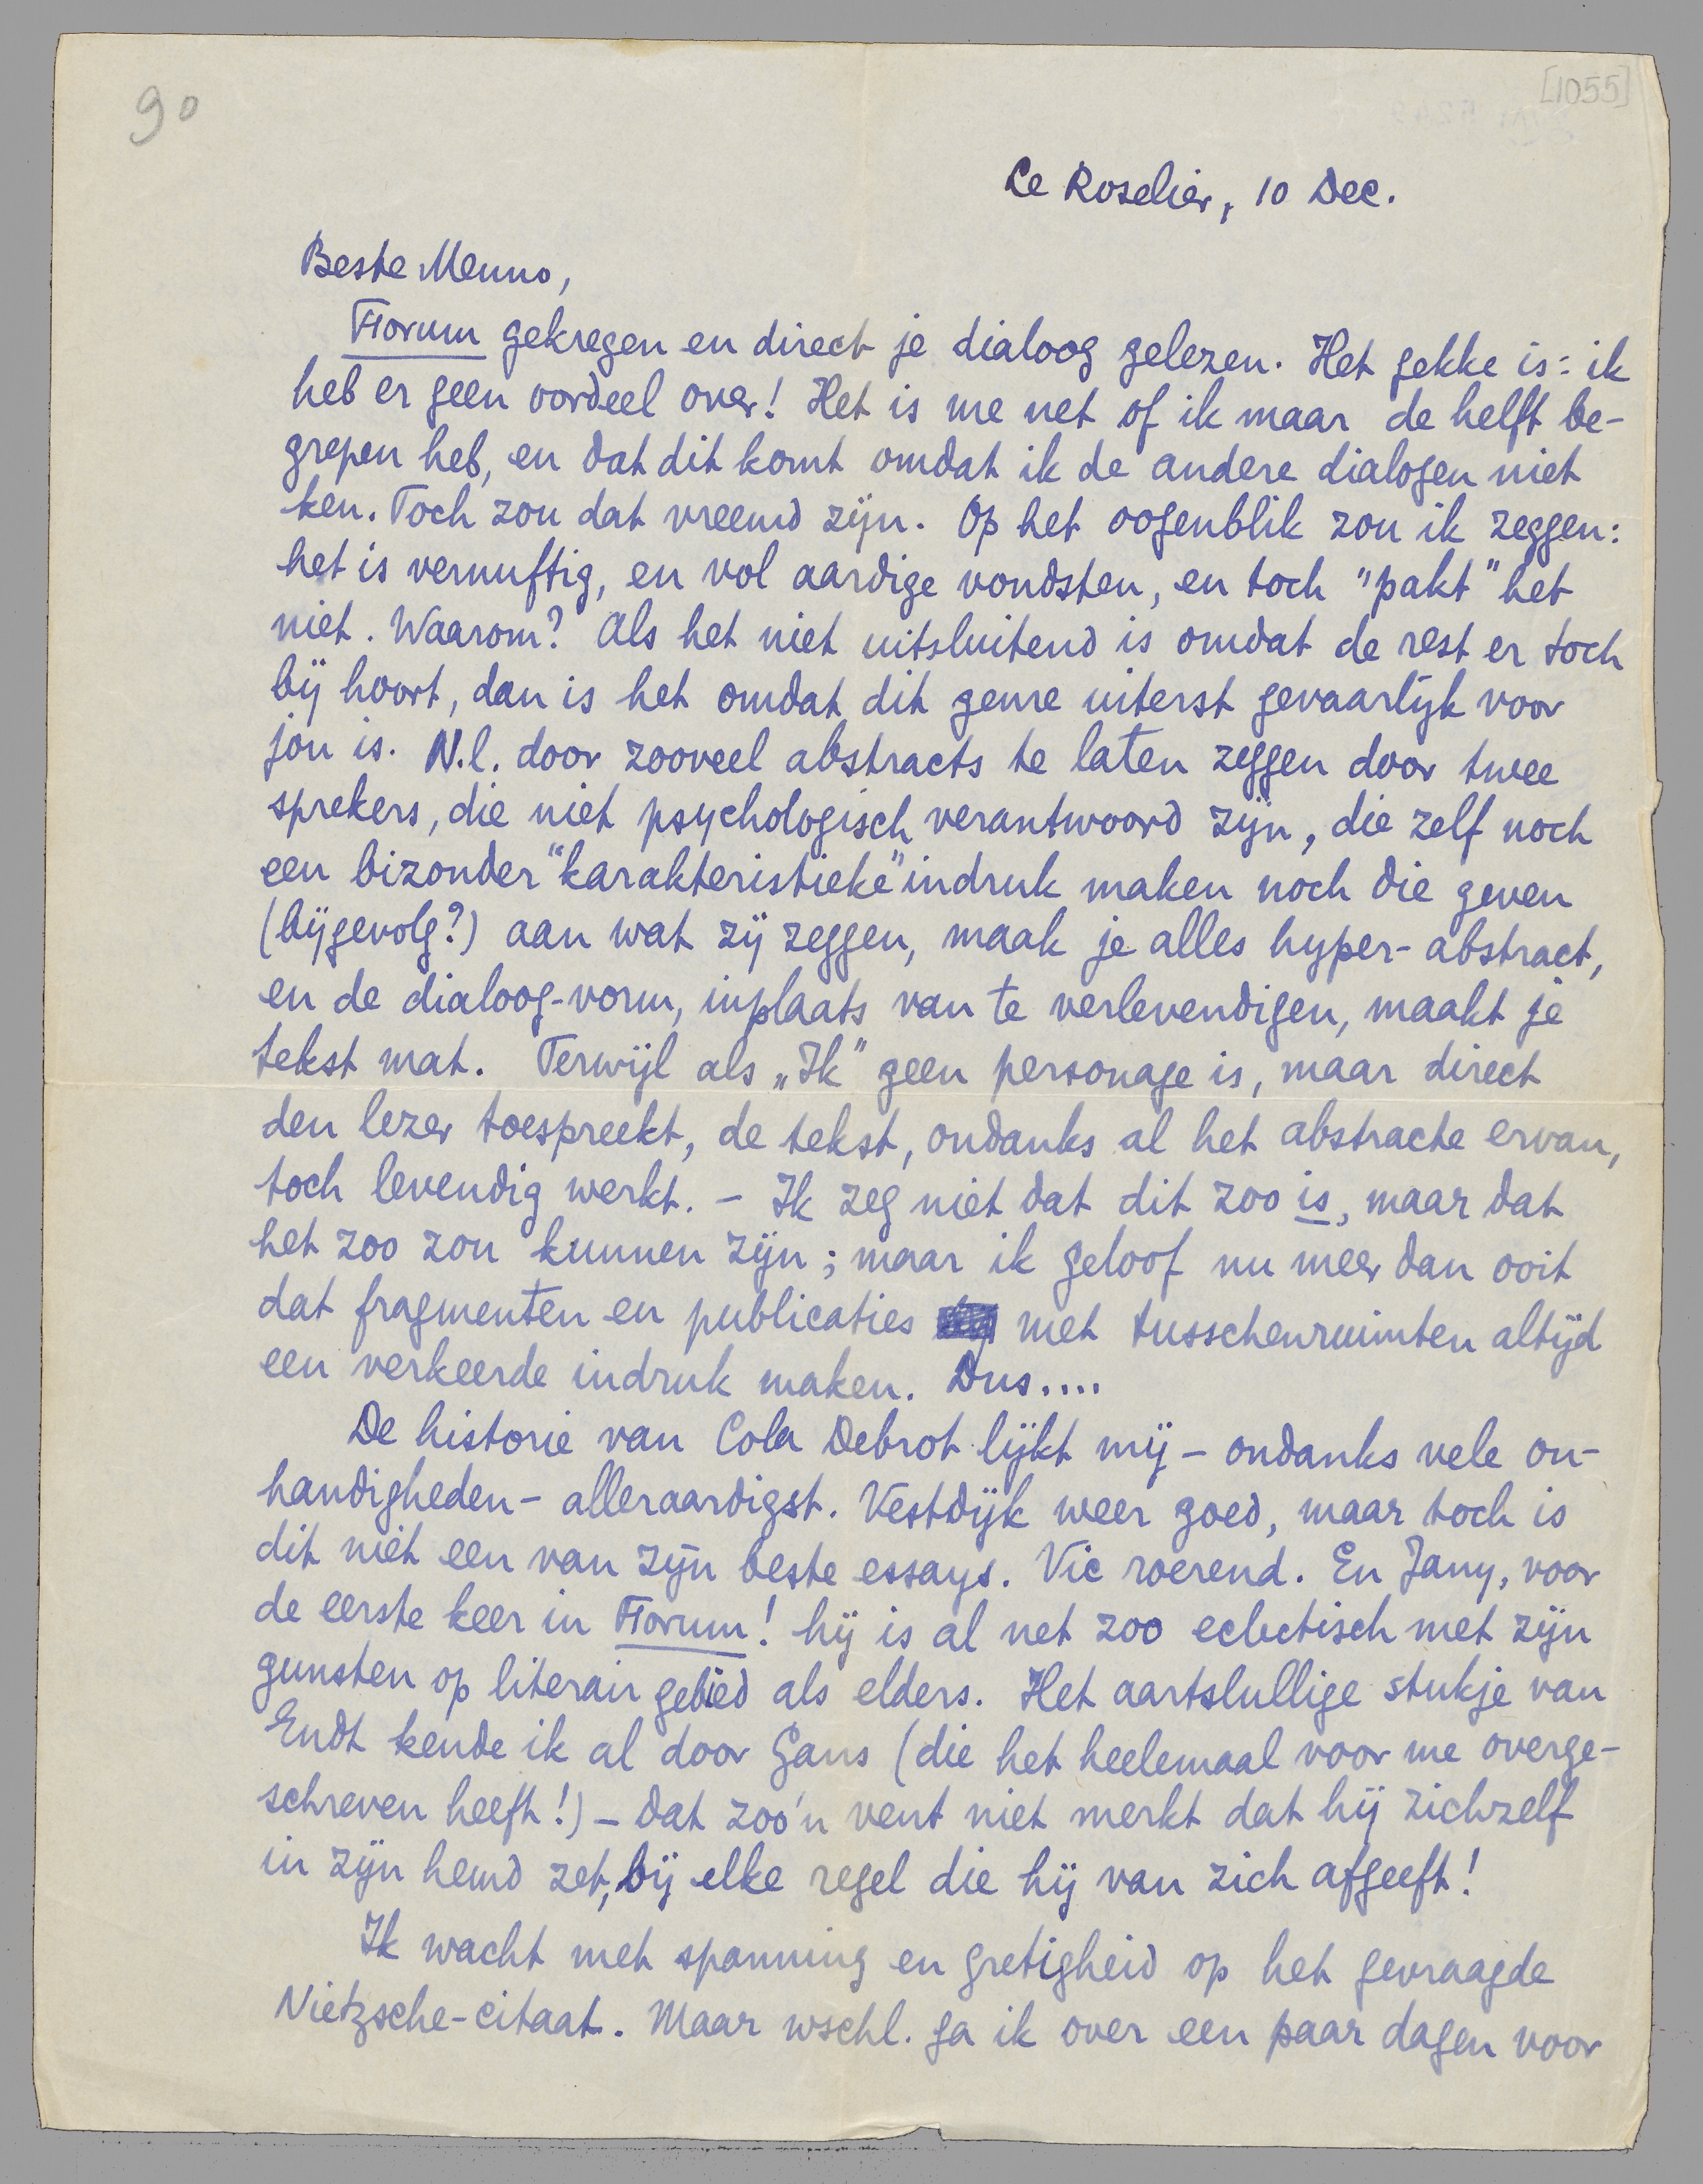 90
[1055]
Le Roselier, 10 Dec.
Beste Menno,
Forum gekregen en direct je dialoog gelezen. Het gekke is: ik
heb er geen oordeel over! Het is me net of ik maar de helft be-
grepen heb, en dat dit komt omdat ik de andere dialogen niet
ken. Toch zou dat vreemd zijn. Op het oogenblik zou ik zeggen:
het is vernuftig, en vol aardige vondsten, en toch "pakt" het
niet. Waarom? Als het niet uitsluitend is omdat de rest er toch
bij hoort, dan is het omdat dit genre uiterst gevaarlijk voor
jou is. N.l. door zooveel abstracts te laten zeggen door twee
sprekers, die niet psychologisch verantwoord zijn, die zelf noch
een bizonder "karakteristieke" indruk maken noch die geven
(bijgevolg?) aan wat zij zeggen, maak je alles hyper-abstract,
en de dialoog-vorm, inplaats van te verlevendigen, maakt je
tekst mat. Terwijl als „Ik" geen personage is, maar direct
den lezer toespreekt, de tekst, ondanks al het abstracte ervan,
toch levendig werkt. – Ik zeg niet dat dit zoo is, maar dat
het zoo zou kunnen zijn; maar ik geloof nu meer dan ooit
dat fragmenten en publicaties met tusschenruimten altijd
een verkeerde indruk maken. Dus....
De historie van Cola Debrot lijkt mij – ondanks vele on-
handigheden – alleraardigst. Vestdijk weer goed, maar toch is
dit niet een van zijn beste essays. Vic roerend. En Jany, voor
de eerste keer in Forum! hij is al net zoo eclectisch met zijn
gunsten op literair gebied als elders. Het aartslullige stukje van
Endt kende ik al door Gans (die het heelemaal voor me overge-
schreven heeft!) – dat zoo'n vent niet merkt dat hij zichzelf
in zijn hemd zet, bij elke regel die hij van zich afgeeft!
Ik wacht met spanning en gretigheid op het gevraagde
Nietzsche-citaat. Maar wschl. ga ik over een paar dagen voor